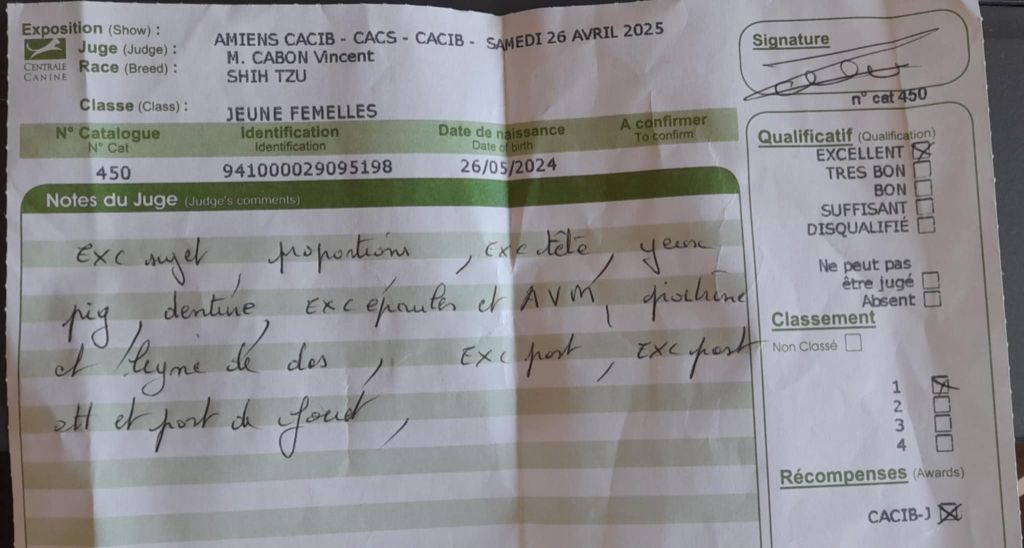 Exposition (Show) :
AMIENS CACIB - CACS - CACIB - SAMEDI 26 AVRIL 2025
CENTRALE CANINE
Juge (Judge) :
M. CABON Vincent
Race (Breed) :
SHIH TZU
Classe (Class) :
JEUNE FEMELLES
N° Catalogue
N° Cat
Identification
Identification
Date de naissance
Date of birth
A confirmer
To confirm
450
941000029095198
26/05/2024
Notes du Juge (Judge's comments)
Exc sujet, proportions, exc tête, yeux
pig, dentine, Exc épaules et AVM, poitrine
et ligne de dos, Exc post, Exc post
att et port de fouet,
Signature
n° cat 450
Qualificatif (Qualification)
EXCELLENT
TRES BON
BON
SUFFISANT
DISQUALIFIÉ
Ne peut pas
être jugé
Absent
Classement
Non Classé
1
2
3
4
Récompenses (Awards)
CACIB-J